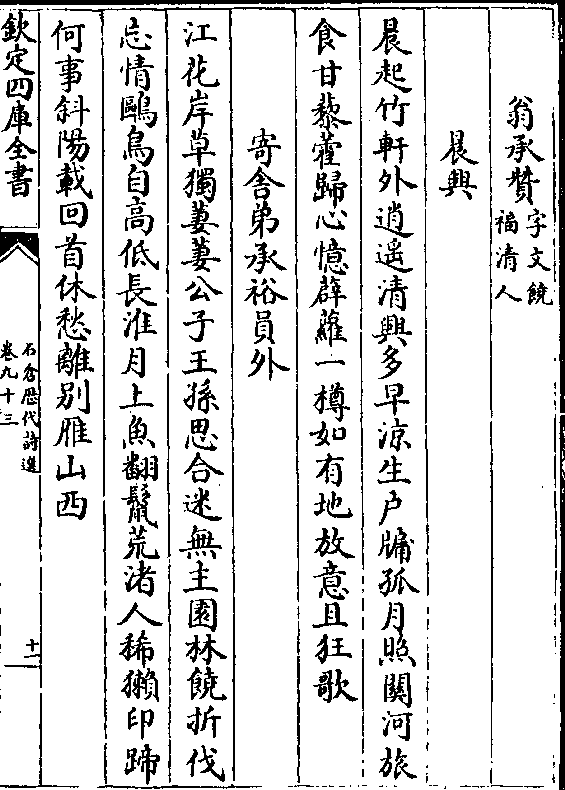 翁承贊字文饒福清人
晨興
晨起竹軒外逍遥清興多早涼生户牖孤月照關河旅
食甘藜藿歸心憶薜蘿一樽如有地放意且狂歌
寄舍弟承裕員外
江花岸草獨萋萋公子王孫思合迷無主園林饒折伐
忘情鷗鳥自高低長淮月上魚翻鬛荒渚人稀獺印蹄
何事斜陽載回首休愁離别雁山西
欽定四庫全書
石倉歴代詩選
卷九十三
十一